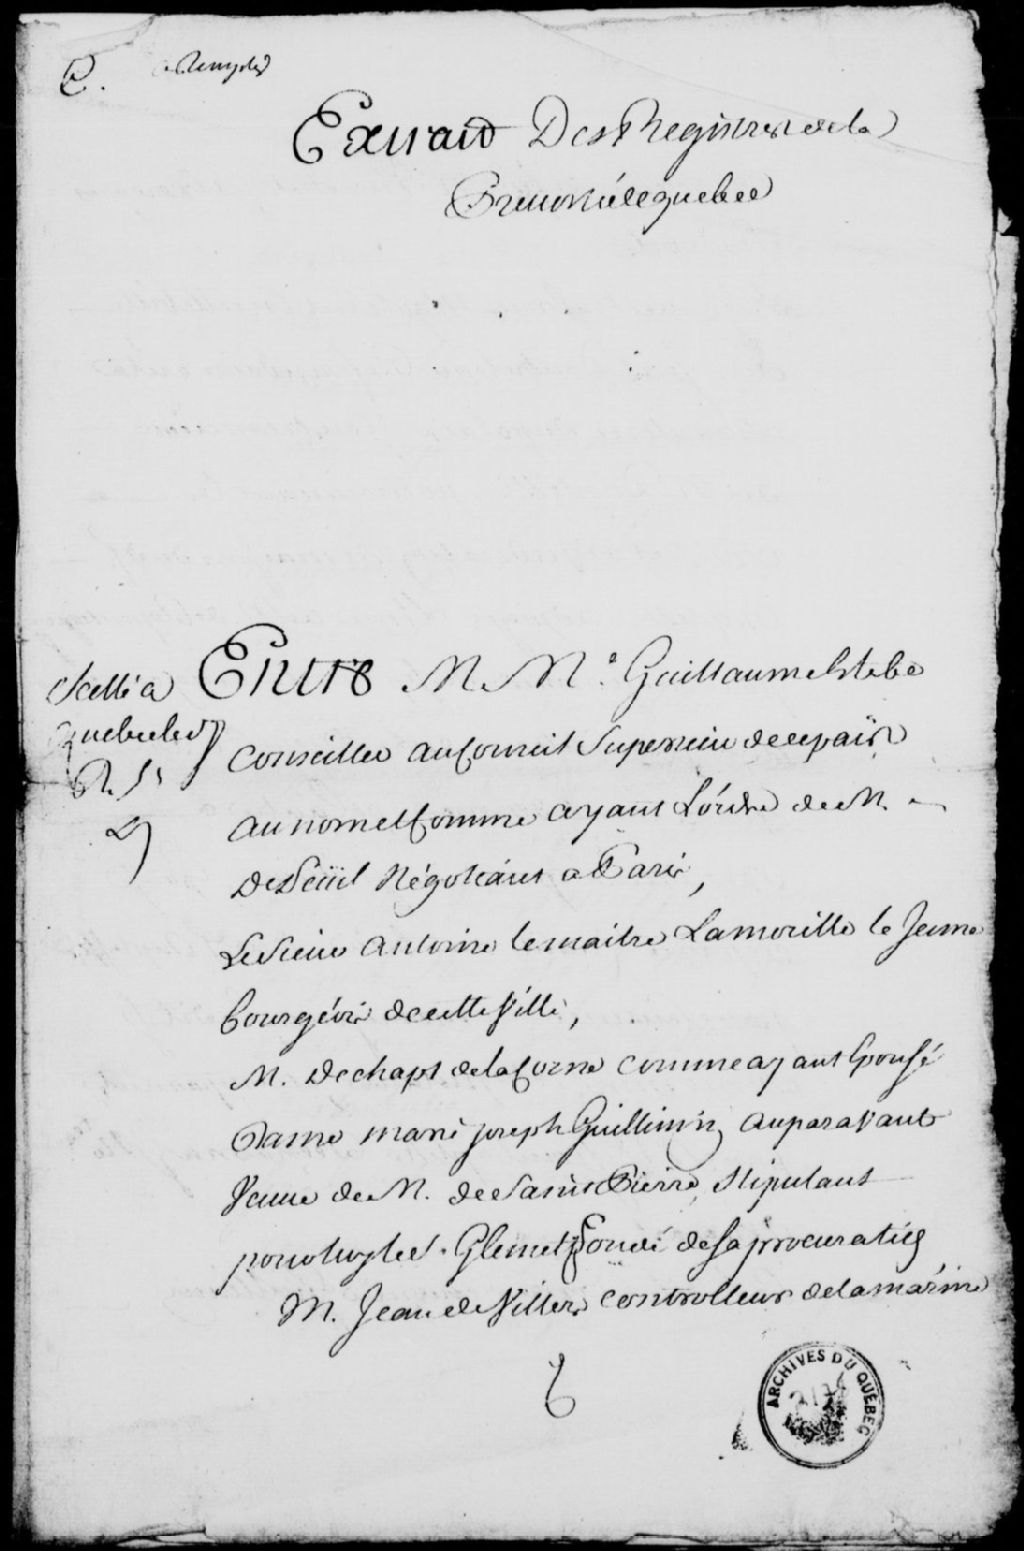 Extrait Des Registres de la
Prevosté de quebec
Scellé a
quebec led
R. 5s
Entre M. Me. Guillaume Estebe
Conseiller au Conseil Superieur de ce païs
au nom et Comme ayant L'ordre de M.
De Seüil Négotiant a Paris,
Le Sieur antoine lemaitre Lamorille le Jeune
bourgéois de cette Ville,
M. Dechapt de la Corne comme ayant Epousé
Dame marie joseph Guillimin auparavant
Veuve de M. de Saint Pierre, Stipulant
pour luy le S. Glemet fondé de sa procuration
M. Jean de Villers controlleur de la marine
ARCHIVES DU QUÉBEC